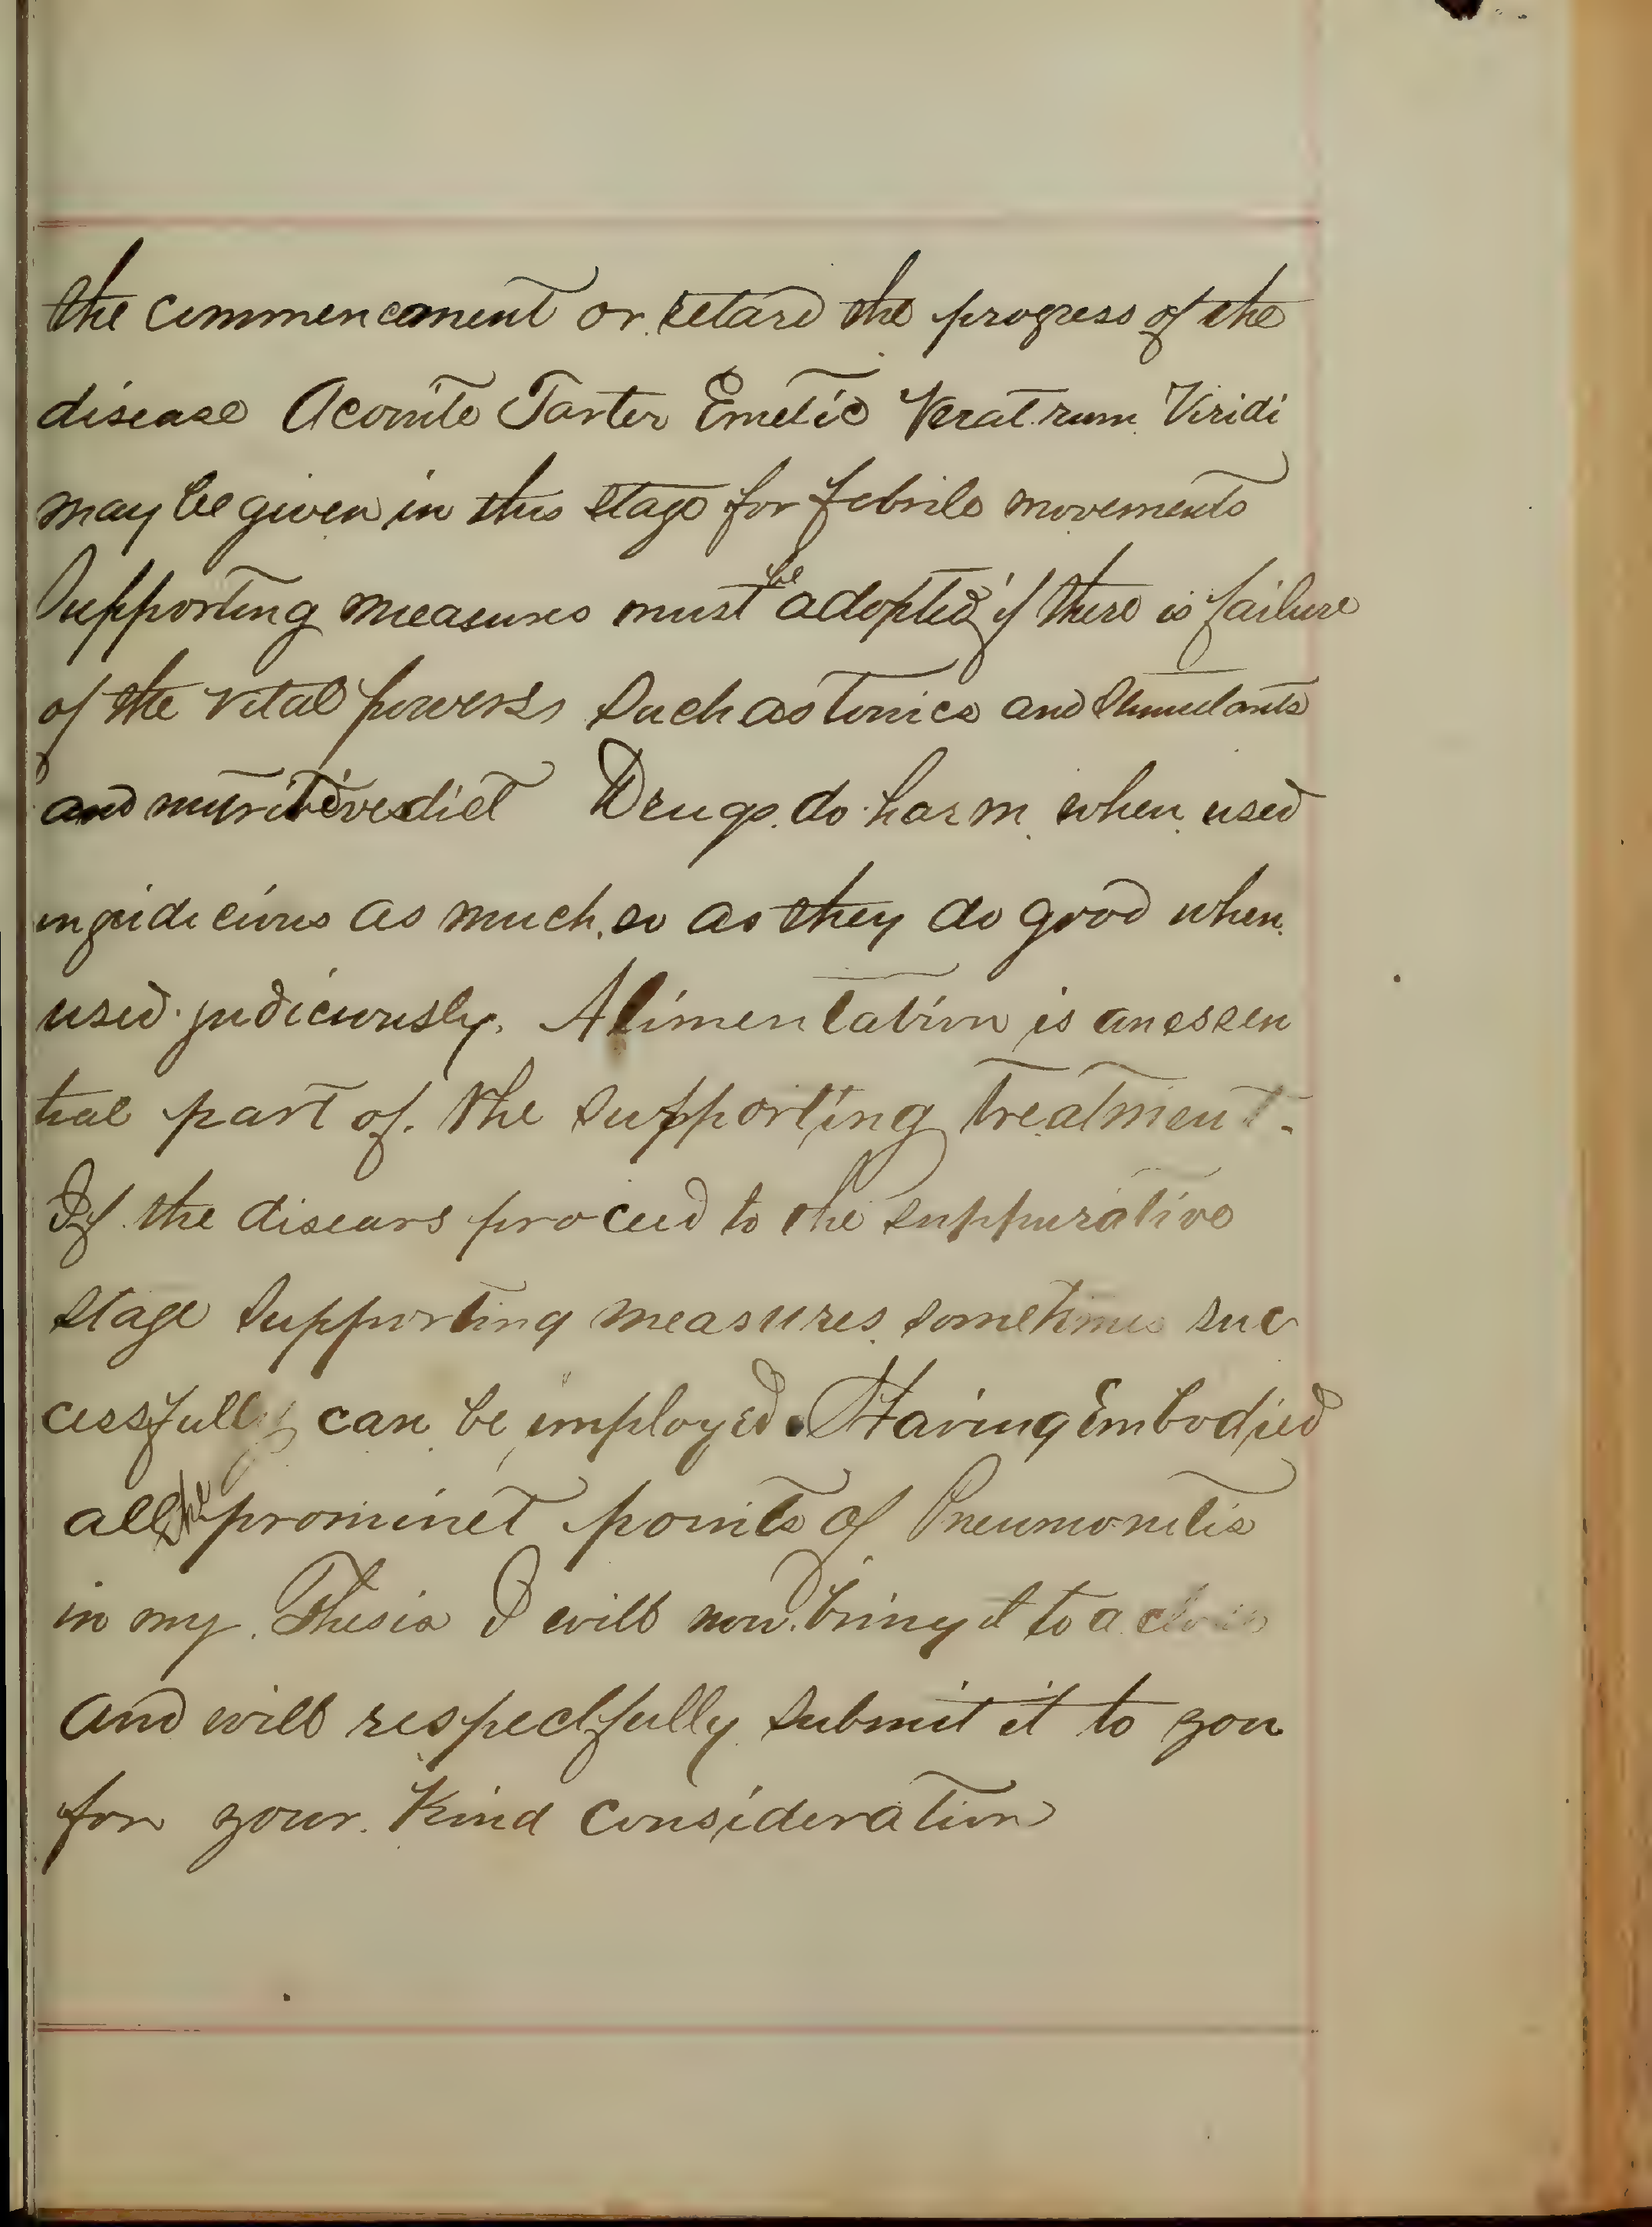 the commencement or retard the progress of the
disease Aconite Tarter Emetic Veratrum Viridi
may be given in this stage for febrile movements
Supporting measures must be adopted if there is failure
of the vital powers such as tonics and Stimulants
and nutritive diet Drugs do harm when used
injudicious as much so as they do good when
used judiciously. Alimentation is an essen
tial part of the supporting treatment.
If the disears proceed to the suppurative
stage supporting measures sometimes suc
cessfully can be employed. Having Embodied
all the prominet points of Pneumonitis
in my Thesis I will now bring it to a close
and will respectfully submit it to you
for your Kind Consideration